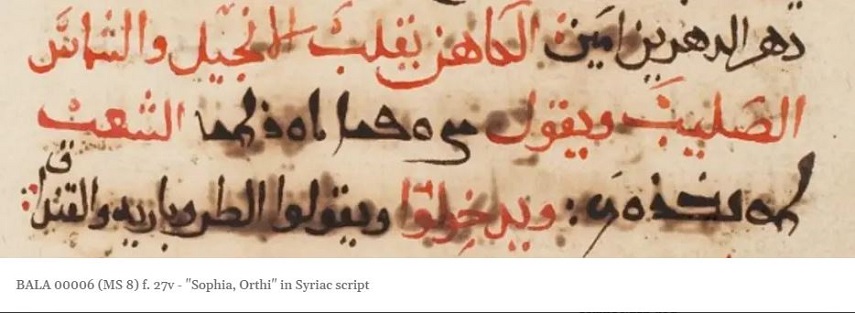 دهر الدهرين امين الكاهن يقلب الانجيل والشماس
الصليب ويقول الشعب
: ويدخلوا ويقولوا الطروباريه والقنداق
BALA 00006 (MS 8) f. 27v - "Sophia, Orthi" in Syriac script